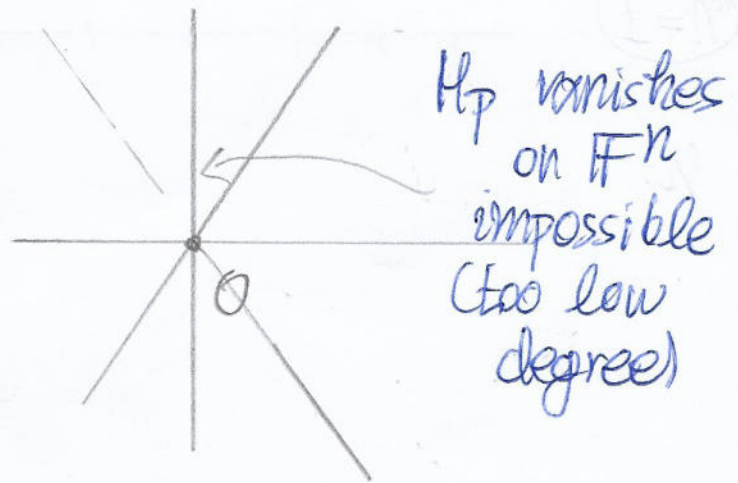 H_P vanishes
on 𝔽ⁿ
impossible
(too low
degree)
O